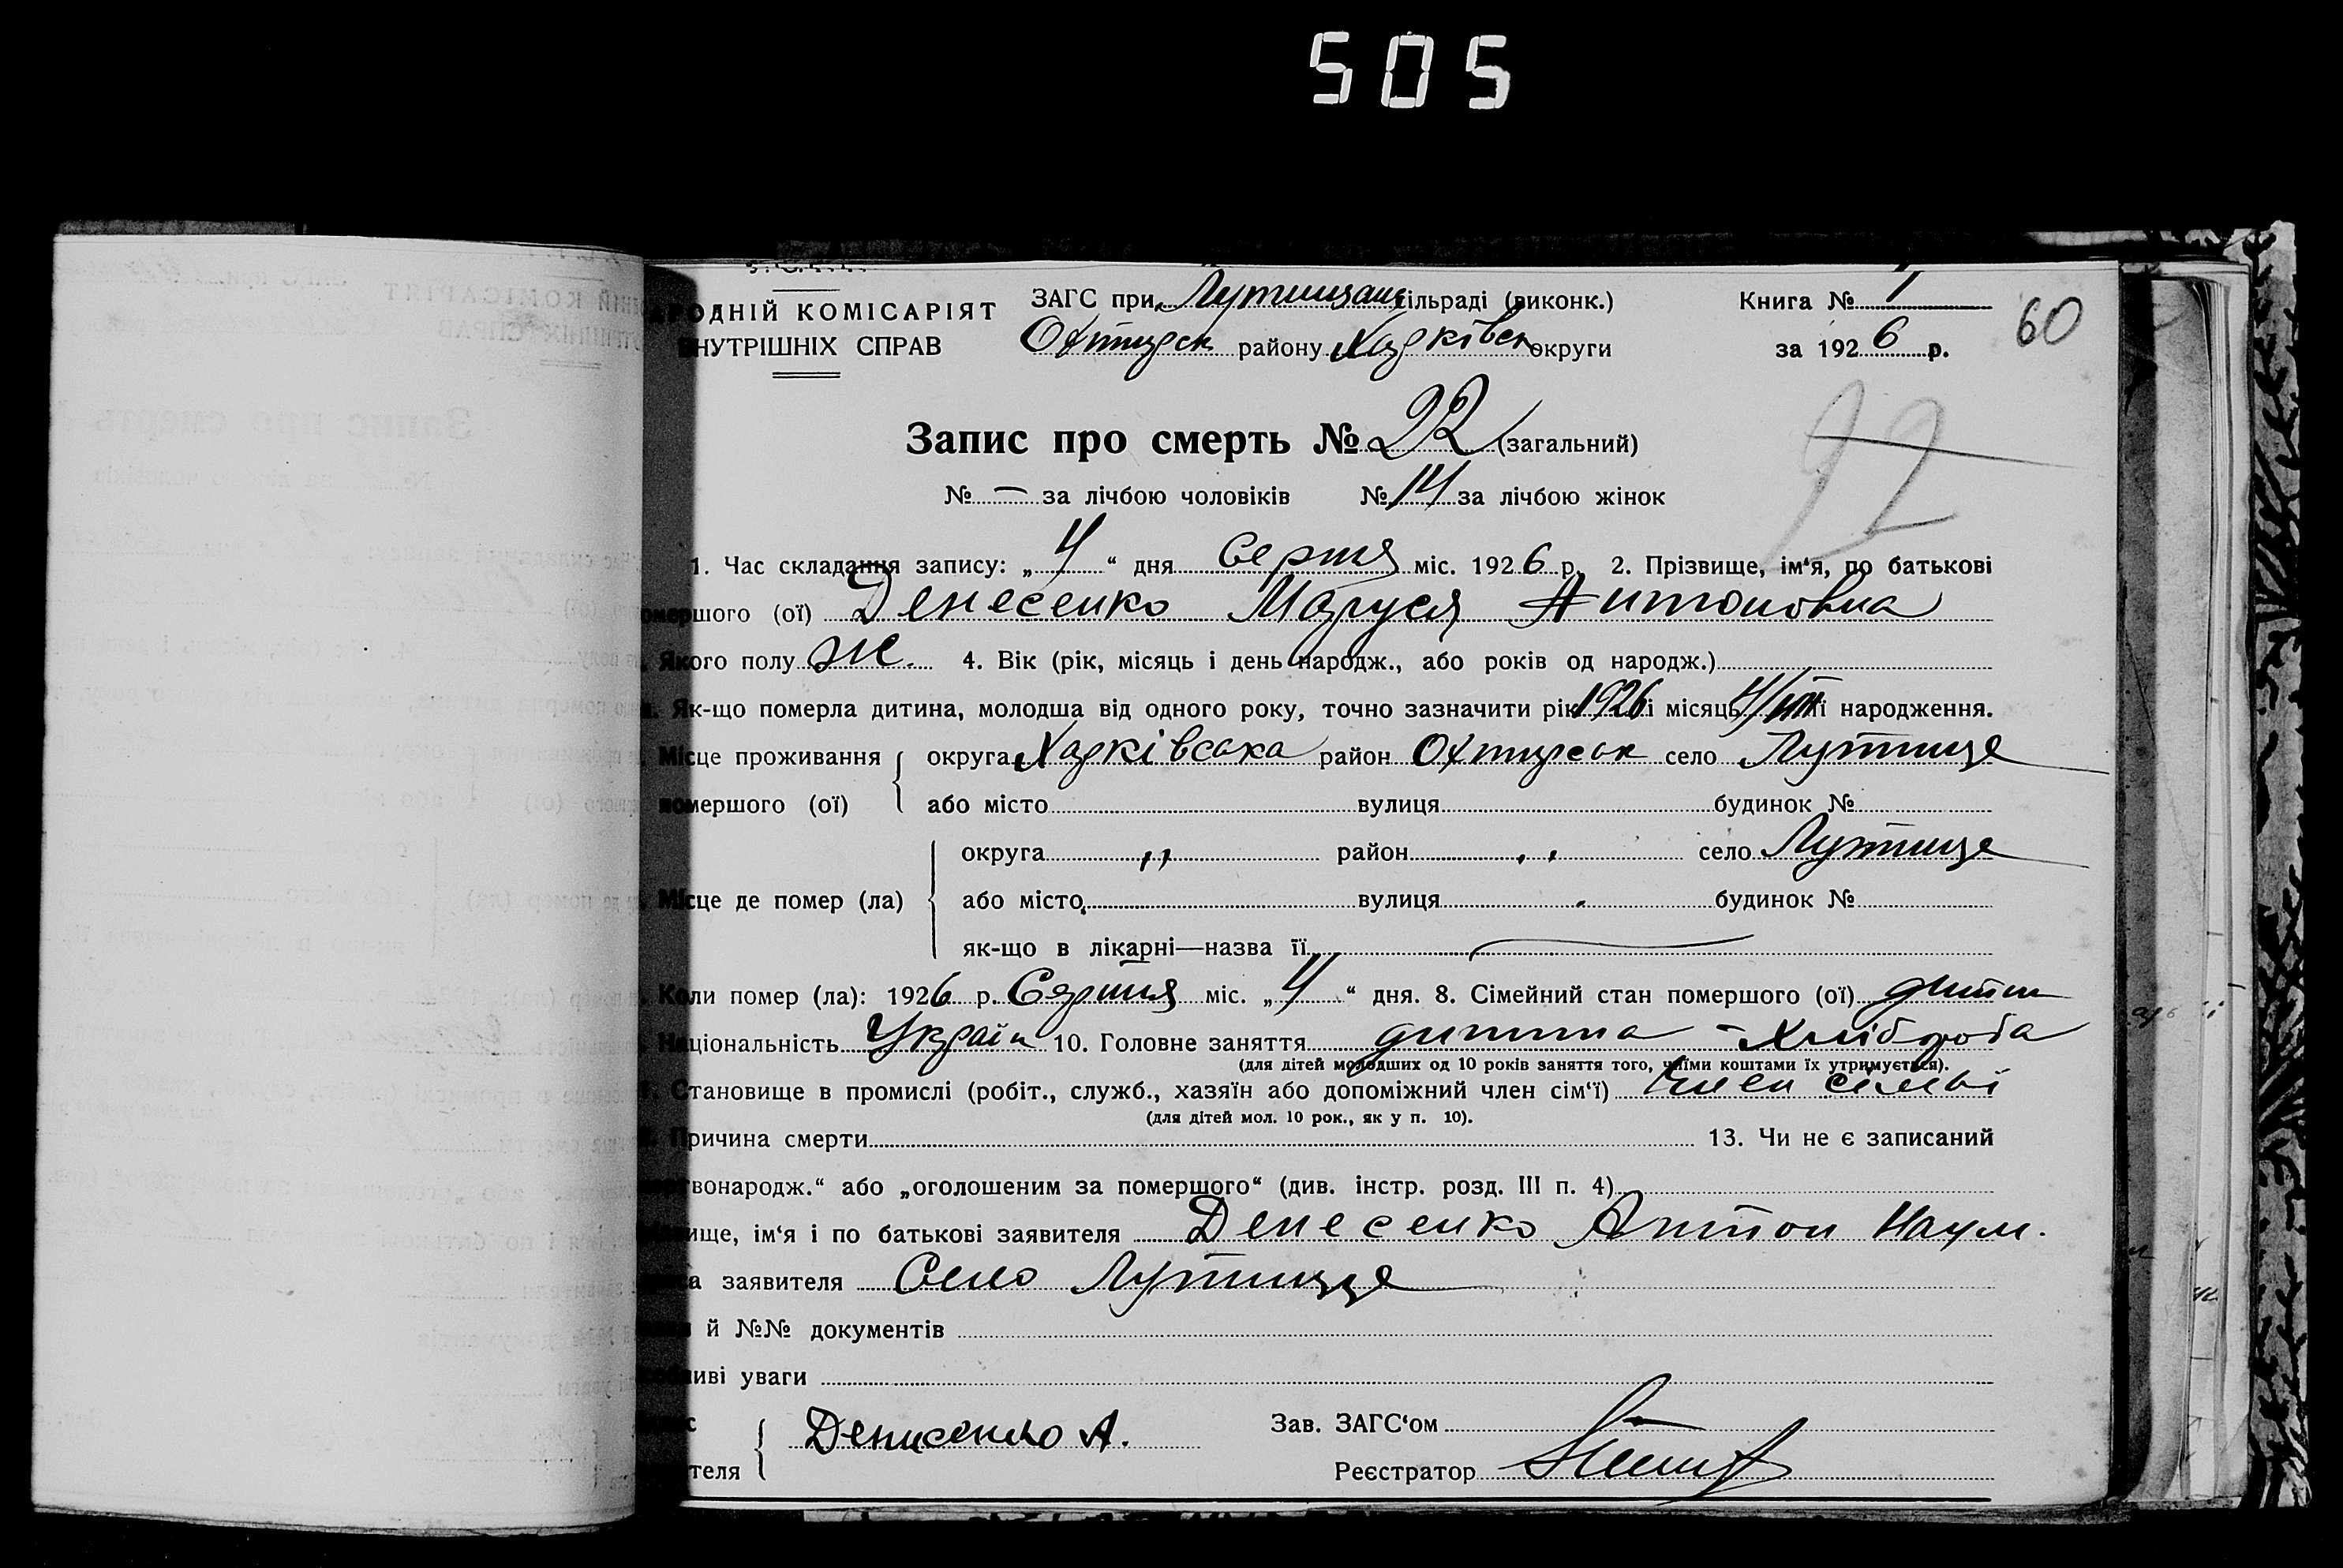 505
РОДНІЙ КОМІСАРІЯТ
ВНУТРІШНІХ СПРАВ
ЗАГС при Лутищанс сільраді (виконк.)
Охтирск району Харківск округи
Книга № 1
за 1926 р.
60
Запис про смерть № 22 (загальний)
22
№ — за лічбою чоловіків № 14 за лічбою жінок
1. Час складання запису: „4“ дня Серпня міс. 1926 р. 2. Прізвище, ім'я, по батькові
помершого (ої) Денесенко Маруся Антоновна
Якого полу Ж. 4. Вік (рік, місяць і день народж., або років од народж.)
Як-що померла дитина, молодша від одного року, точно зазначити рік 1926 і місяць 4/VIII її народження.
Місце проживання помершого (ої) округа Харківська район Охтирськ село Лутище
або місто вулиця будинок №
Місце де помер (ла) округа „ район „ село Лутище
або місто вулиця будинок №
як-що в лікарні—назва її
Коли помер (ла): 1926 р. Серпня міс. „4“ дня. 8. Сімейний стан помершого (ої) дитин
Національність Україн 10. Головне заняття дитина - Хлібороба
(для дітей молодших од 10 років заняття того, чиїми коштами їх утримується).
Становище в промислі (робіт., служб., хазяїн або допоміжний член сім'ї) член сімьї
(для дітей мол. 10 рок., як у п. 10).
Причина смерти 13. Чи не є записаний
твонародж.“ або „оголошеним за помершого“ (див. інстр. розд. III п. 4)
вище, ім'я і по батькові заявителя Денесенко Антон Наум.
са заявителя Село Лутище
й №№ документів
ливі уваги
теля Денисенко А.
Зав. ЗАГС'ом
Реєстратор